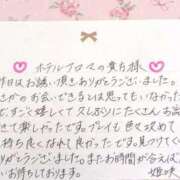 ♡ホテルアロマの貴方様♡
昨日はお誘い頂きありがとうございました。
さかのお会いできるとは思ってもいなかった
ので、すごく嬉しくて久しぶりにたくさんお話
できて楽しかったです。プレイも色々攻めて
持ち良くなれて良かったです。見
りがとうございました。またお時間が合えば
お待ちしております。 姫咲